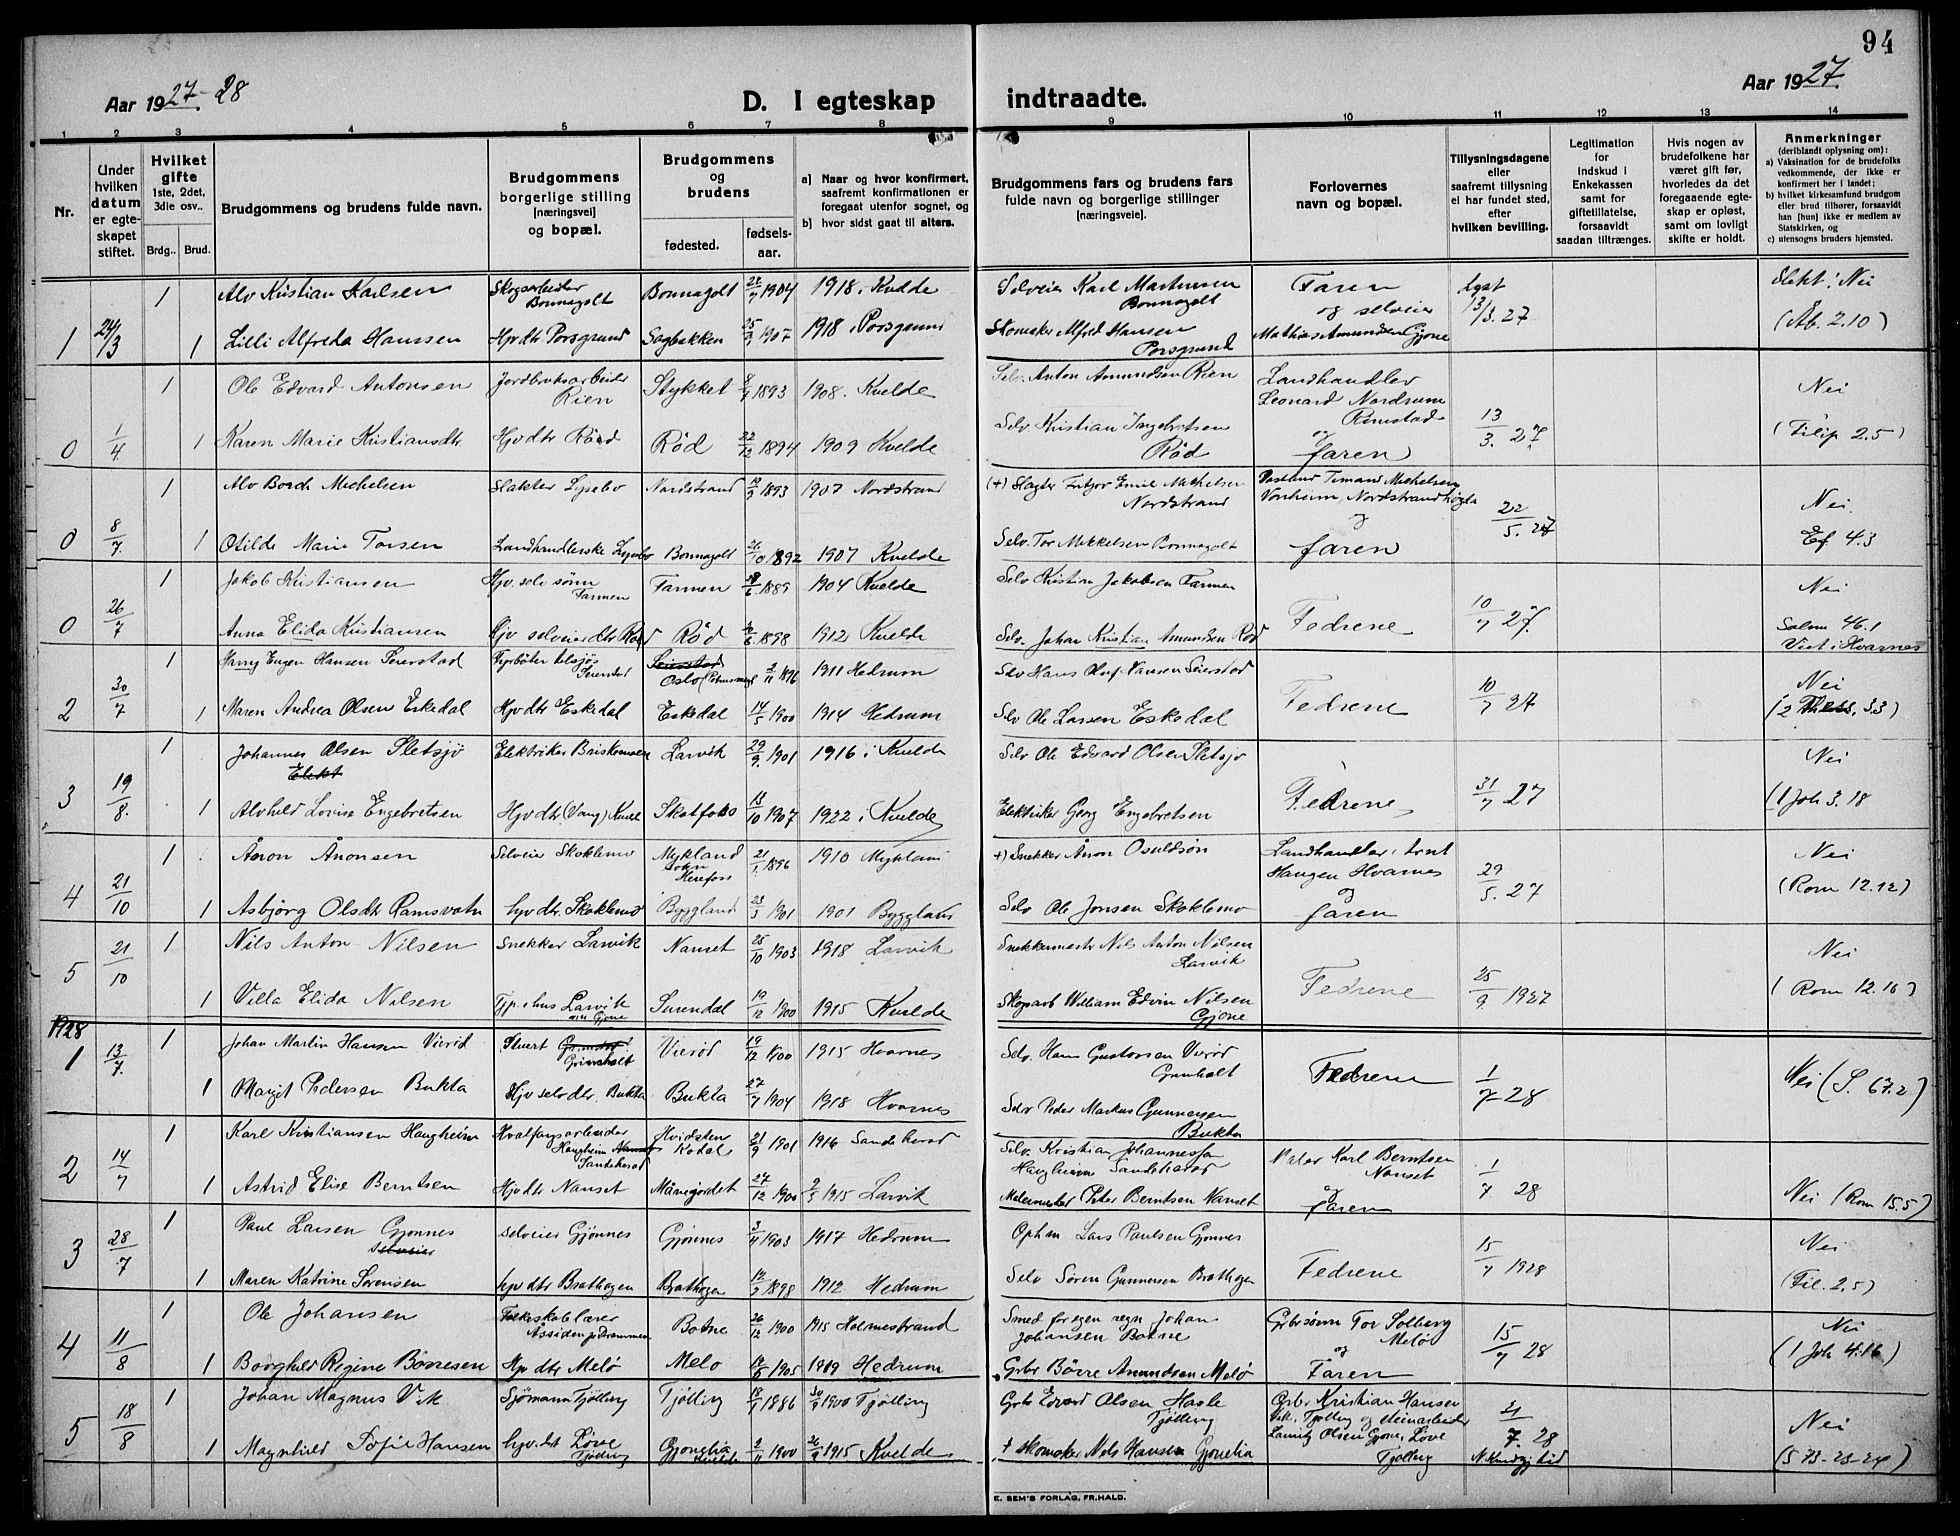 94
Aar 1927-28
D. I egteskap indtraadte.
Aar 1927.
1 2 3 4 5 6 7 8 9 10 11 12 13 14
Nr.
Under hvilken datum er egteskapet stiftet.
Hvilket gifte 1ste, 2det, 3die osv..
Brdg.. Brud.
Brudgommens og brudens fulde navn.
Brudgommens borgerlige stilling [næringsvei] og bopæl.
Brudgommens og brudens
fødested. fødselsaar.
a) Naar og hvor konfirmert, saafremt konfirmationen er foregaat utenfor sognet, og
b) hvor sidst gaat til alters.
Brudgommens fars og brudens fars fulde navn og borgerlige stillinger [næringsvei].
Forlovernes navn og bopæl.
Tillysningsdagene eller saafremt tillysning ei har fundet sted, efter hvilken bevilling.
Legitimation for indskud i Enkekassen samt for giftetillatelse, forsaavidt saadan tiltrænges.
Hvis nogen av brudefolkene har været gift før, hvorledes da det foregaaende egteskap er opløst, samt om lovligt skifte er holdt.
Anmerkninger
(deriblandt oplysning om):
a) Vaksination for de brudefolks vedkommende, der ikke er konfirmert her i landet;
b) hvilket kirkesamfund brudgom eller brud tilhører, forsaavidt han [hun] ikke er medlem av Statskirken, og
c) utensogns bruders hjemsted.
1 Alv Kristian Karlsen Skogsarbeider Bonnagolt Bonnagolt 1904 1918 i Kvelde Selveier Karl Martinsen Bonnagolt Faren og selveier lyst 13/3. 27 Slekt: Nei
1 24/3 1 Lilli Alfreda Hanssen Hjv dtr Porsgrund Sagbakken 1907 1918 i Porsgrund Skomaker Alfred Hansen Porsgrund Mathias Amundsen Gjone (Åb. 2.10)
1 Ole Edvard Antonsen Jordbruksarbeider Rien Stykket 1893 1908. Kvelde Selv. Anton Amundsen Rien Landhandler Leonard Nordrum Rimstad Nei
0 1/4 1 Karen Marie Kristiansdtr Hjv dtr Röed Röd 22/12 1894 1909 Kvelde Selv. Kristian Ingebretsen Röd og faren 13/3. 27 (Filip 2.5)
1 Alv Borch Michelsen Slakter Lysebo Nordstrand 1893 1907 Nordstrand (+) Slagter Fritjov Emil Michelsen Nordstrand Nei.
0 8/7. 1 Otilde Marie Torsen Landhandlerske Lysebo Bonnagolt 1892 1907 Kvelde Selv. Tor Mikkelsen Bonnagolt og faren 22/5. 27 Ef. 4.3
1 Jakob Kristiansen Hjv. selv sönn Farmen Farmen 1889 1904 Kvelde Selv Kristian Jakobsen Farmen Nei
0 26/7 Anna Elida Kristiansen Hjv selveier dtr Röd Röd 1898 1912 Kvelde Selv. Johan Kristian Amundsen Röd Fedrene 10/7 27. Salm 46.1 Viet i Hvarnes
1 Harry Eugen Hansen Seierstad Fyrböter Seierstad Oslo 2/11 1896 1911 Hedrum Selv Hans Oluf Hansen Seierstad Nei
2 30/7 1 Maren Andrea Olsen Eskedal Hjv dtr Eskedal Eskedal 14/5 1900 1914 Hedrum Selv Ole Larsen Eskedal Fedrene 10/7 27 (2 Thess. 3.3)
1 Johannes Olsen Sletsjö Elektriker Larvik 29/9. 1901 1916 i Kvelde Selv Ole Edvard Olsen Sletsjö Nei
3 19/8. 1 Alvhild Lovise Engebretsen Hjv dtr (Vang) Kvelde Skotfoss 13/10 1907 1922 i Kvelde Elektriker Georg Engebretsen Fedrene 31/7 27 (1 Joh 3.18
1 Ånon Ånonsen Selveier Skoklemo Mykland sokn Herefoss 21/1. 1896 1910 Mykland +) Snekker Ånon Osuldsön Landhandler Haugen Hvarnes Nei
4 21/10 1 Asbjörg Olsdtr Ramsvatn hjv dtr. Skoklemo Byggland 23/3 1901 1901 Bygland Selv Ole Jonsen Skoklemo og faren 29/5. 27 (Rom 12.12)
5 21/10 1 Nils Anton Nilsen Snekker Larvik Nanset 25/10 1903 1918 Larvik Snekkermestr Nils Anton Nilsen Larvik Nei
1 Villa Elida Nilsen Tjp. i hus Larvik Gjone Surendal 19/12 1900 1915 Kvelde Skogsarb William Edvin Nilsen Gjone Fedrene 25/9 1927 (Rom 12.16)
1928
1 13/7. 1 Johan Martin Hansen Vieröd Stuert Grimholt Vieröd 19/12 1900 1915 Hvarnes Selv. Hans Gustavsen Vieröd Grimholt Fedrene 1/7 28 Nei (S. 67.2)
1 Margit Pedersen Bukta Hjv selv dtr. Bukta Bukta 27/7 1904 1918 Hvarnes Selv Peder Markus Gunnarsen Bukta
1 Karl Kristiansen Haugheim Hvalfangsarbeider Haugheim Sandeherad Hvidsten Kodal 21/9 1901 1916 Sandeherad Selv. Kristian Johannessen Haugheim Sandeherad Maler Karl Berntsen Nanset
2 14/7 1 Astrid Elise Berntsen Hjv dtr Nanset Månejordet 27/12 1900 1915 Larvik Malermester Peter Berntsen Nanset og faren 1/7 28 Nei (Rom 15.5)
1 Paul Larsen Gjønnes selveier Gjønnes Gjønnes 1903 1917 Hedrum Lars Paulsen Gjønnes Nei
3 28/7 1 Maren Katrine Sørensen hjv dtr Brathagen Brathagen 1898 1912 Hedrum Selv Søren Gunnersen Brathagen Fedrene 15/7 1928 (Fil. 2.5)
1 Ole Johansen Folkeskolelærer Åssiden pr Drammen Botne 26/12 1900 1915 Holmestrand Smed for egen regn. Johan Johansen Botne Grbr sønn Tor Solberg Melø Nei
4 11/8 1 Borghild Regine Børresen Hjv dtr Melö Melö 1905 1919 Hedrum Grbr Börre Amundsen Melö og Faren 15/7 28 (1 Joh 4.16)
1 Johan Magnus Vik Sjømann Tjølling Tjølling 1886 1900 Tjølling Grbr Edvard Olsen Hasle Tjølling Grbr Kristian Hansen Vik, Tjølling og steinarbeider
5 18/8 1 Magnhild Sofie Hansen hjv. dtr Löve Tjølling Gjonelia Kvelde 1900 1915 Kvelde + skomaker Nils Hansen Gjonelia Lauritz Olsen Gjone, Löve Tjølling 21/7. 28 Nei
E. SEM'S FORLAG, FR.HALD.